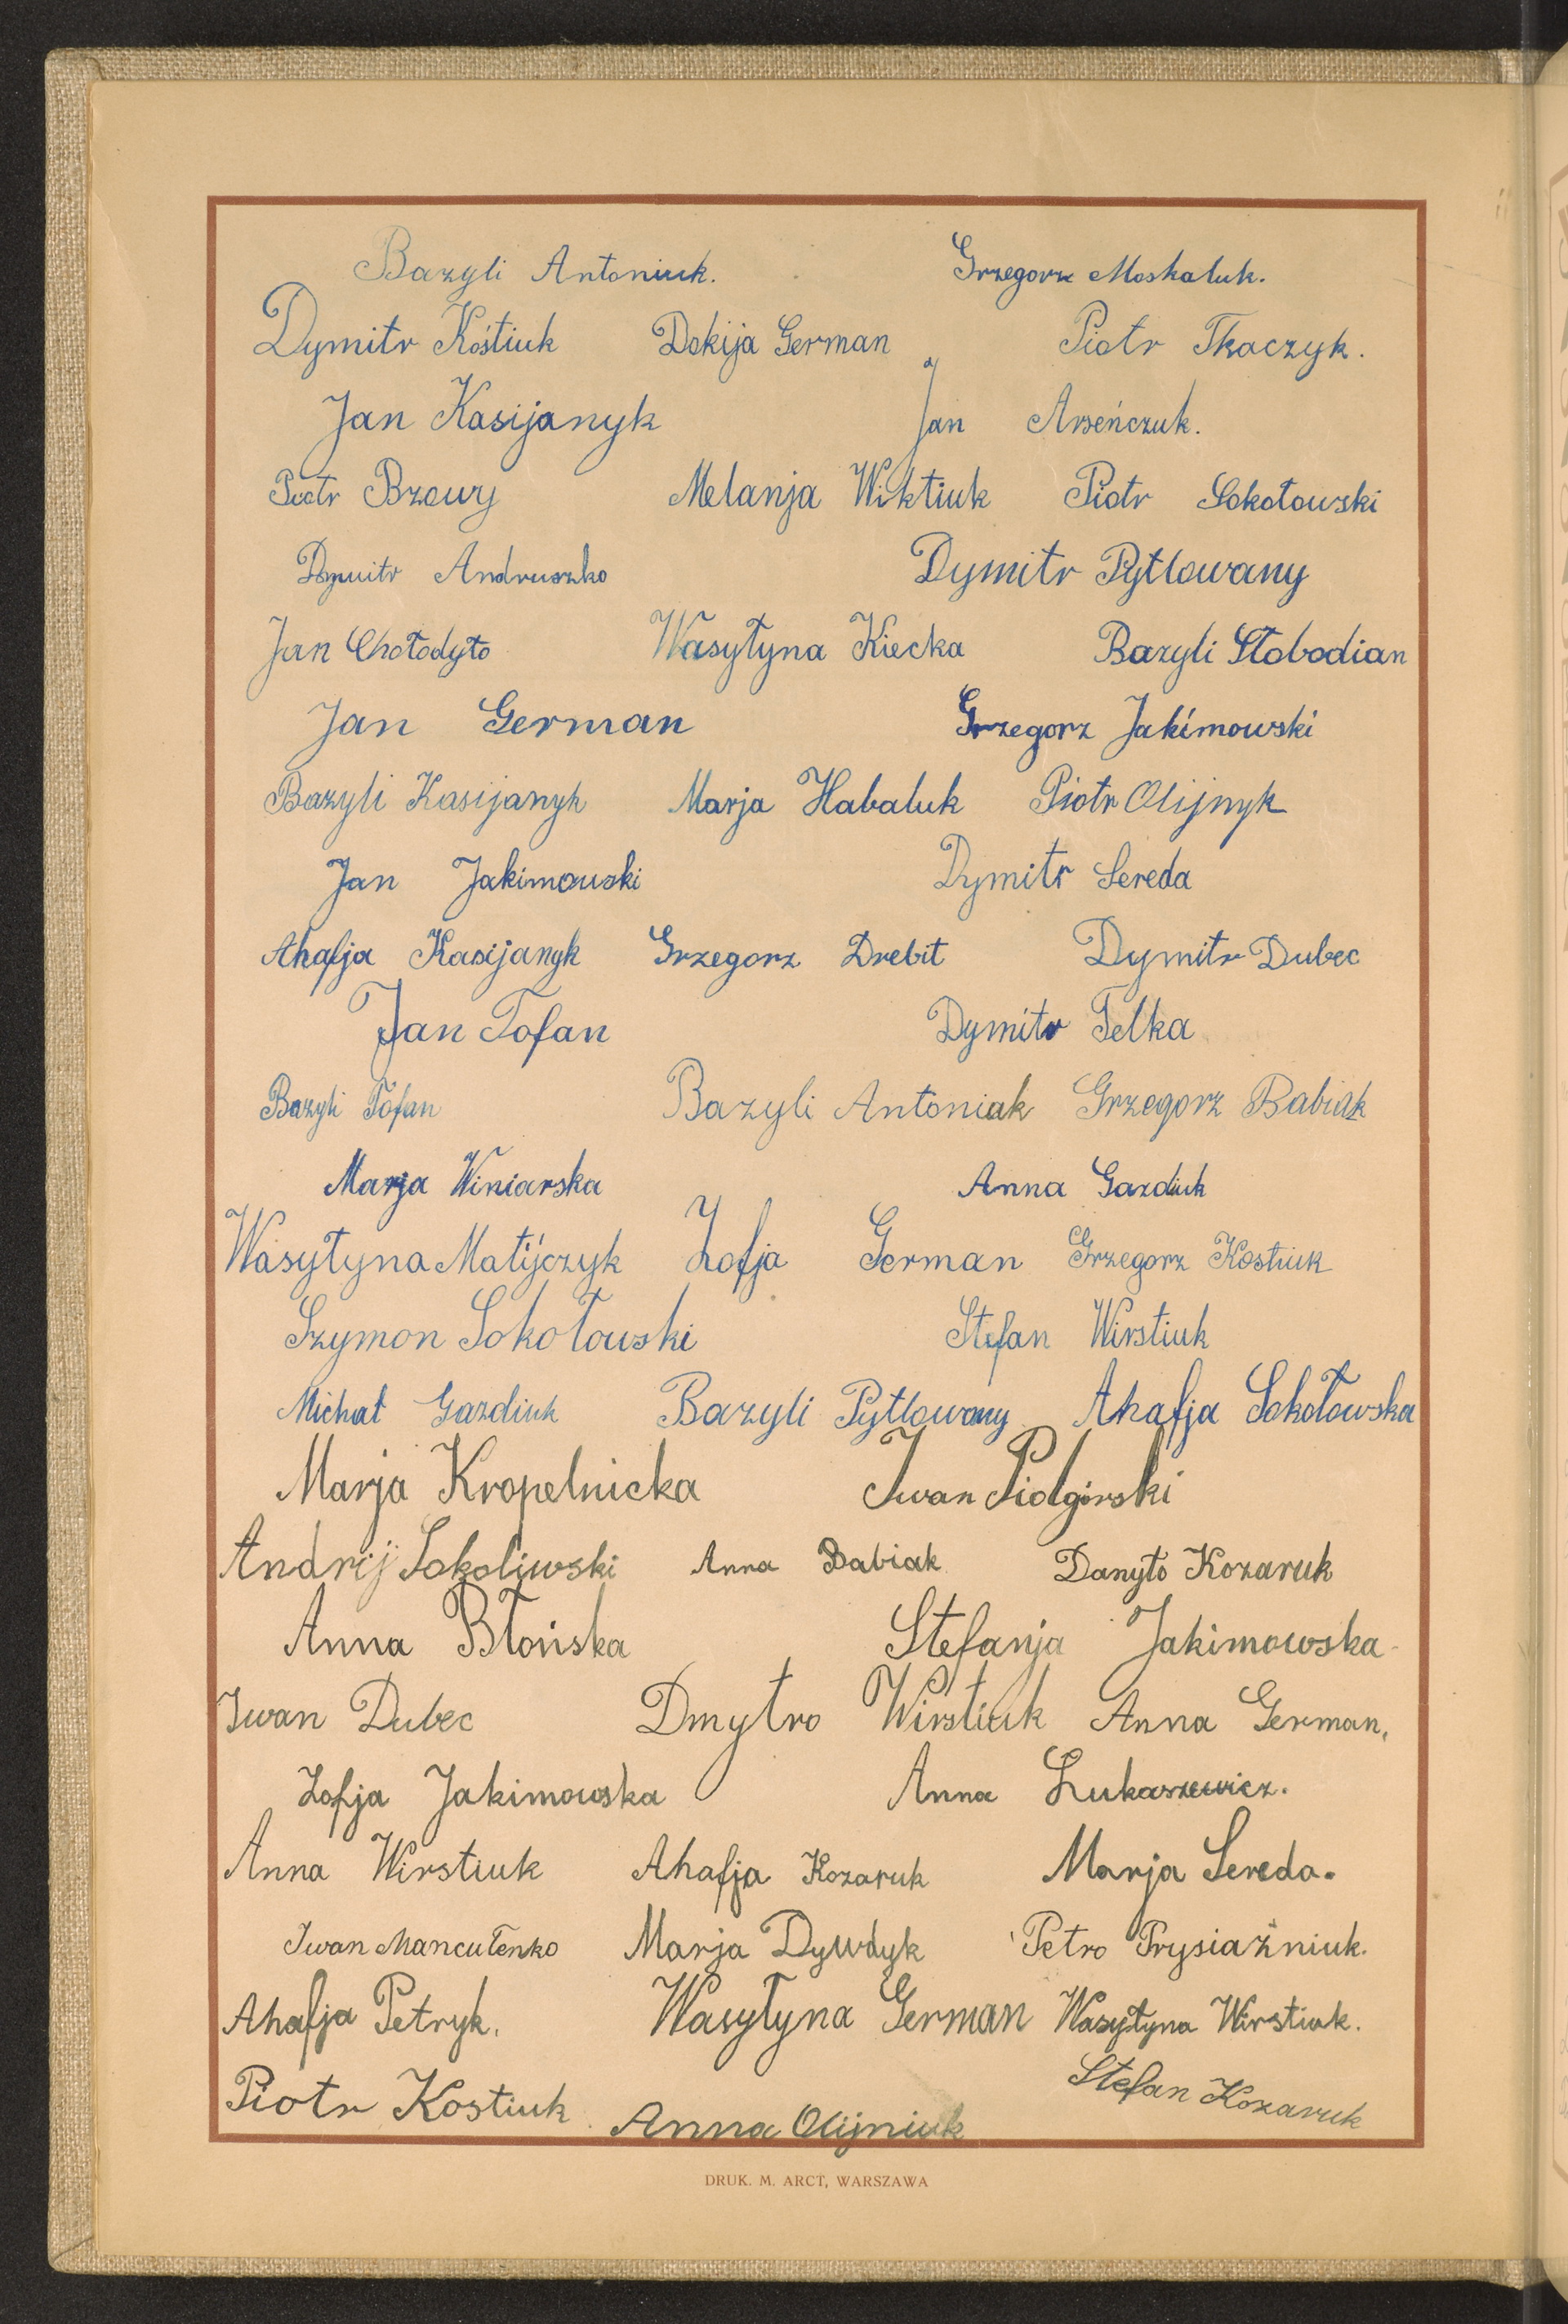 Bazyli Antoniuk. Grzegorz Moskaluk.
Dymitr Kostiuk Dokija German Piotr Tkaczyk.
Jan Kasijanyk Jan Arseńczuk.
Piotr Brzowy Melanja Wiktiuk Piotr Sokołowski
Dymitr Andruszko Dymitr Pytlowany
Jan Chołodyło Wasyłyna Kiecka Bazyli Słobodian
Jan German Grzegorz Jakimowski
Bazyli Kasijanyk Marja Habaluk Piotr Olijnyk
Jan Jakimowski Dymitr Sereda
Ahafja Kasijanyk Grzegorz Drebit Dymitr Dubec
Jan Tofan Dymitr Telka
Bazyli Tofan Bazyli Antoniak Grzegorz Babiak
Marja Winiarska Anna Gazdiuk
Wasyłyna Matijczyk Zofja German Grzegorz Kostiuk
Szymon Sokołowski Stefan Wirstiuk
Michał Gazdiuk Bazyli Pytlowany Ahafja Sokołowska
Marja Kropelnicka Iwan Pidgórski
Andrij Sokoliwski Anna Babiak Danyło Kozaruk
Anna Błońska Stefanja Jakimowska
Iwan Dubec Dmytro Wirstiuk Anna German.
Zofja Jakimowska Anna Łukaszewicz.
Anna Wirstiuk Ahafja Kozaruk Marja Sereda.
Iwan Mancułenko Marja Dywdyk Petro Prysiaźniuk.
Ahafja Petryk. Wasyłyna German Wasyłyna Wirstiuk.
Piotr Kostiuk Anna Olijniuk Stefan Kozaruk
DRUK. M. ARCT, WARSZAWA